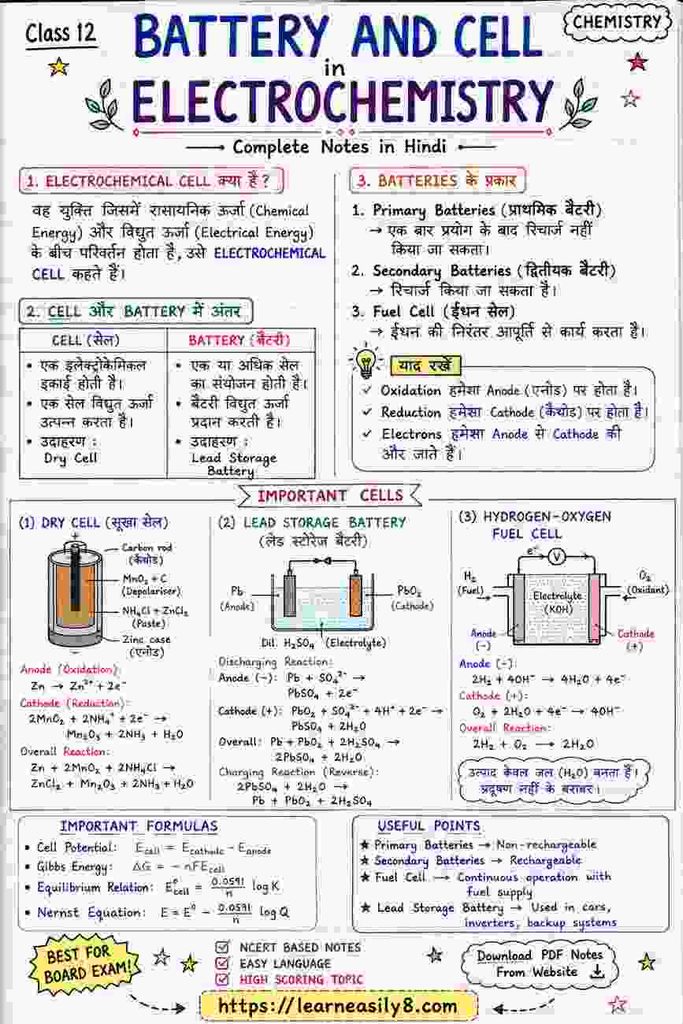 Class 12
CHEMISTRY
BATTERY AND CELL
in
ELECTROCHEMISTRY
Complete Notes in Hindi
1. ELECTROCHEMICAL CELL क्या है ?
वह युक्ति जिसमें रासायनिक ऊर्जा (Chemical
Energy) और विद्युत ऊर्जा (Electrical Energy)
के बीच परिवर्तन होता है, उसे ELECTROCHEMICAL
CELL कहते हैं।
2. CELL और BATTERY में अंतर
CELL (सेल)
• एक इलेक्ट्रोकेमिकल
इकाई होती है।
• एक सेल विद्युत ऊर्जा
उत्पन्न करता है।
• उदाहरण :
Dry Cell
BATTERY (बैटरी)
• एक या अधिक सेल
का संयोजन होती है।
• बैटरी विद्युत ऊर्जा
प्रदान करती है।
• उदाहरण :
Lead Storage
Battery
3. BATTERIES के प्रकार
1. Primary Batteries (प्राथमिक बैटरी)
→ एक बार प्रयोग के बाद रिचार्ज नहीं
किया जा सकता।
2. Secondary Batteries (द्वितीयक बैटरी)
→ रिचार्ज किया जा सकता है।
3. Fuel Cell (ईंधन सेल)
→ ईंधन की निरंतर आपूर्ति से कार्य करता है।
याद रखें
✓ Oxidation हमेसा Anode (एनोड) पर होता है।
✓ Reduction हमेसा Cathode (कैथोड) पर होता है।
✓ Electrons हमेसा Anode से Cathode की
और जाते हैं।
IMPORTANT CELLS
(1) DRY CELL (सूखा सेल)
Carbon rod
(कैथोड)
MnO₂ + C
(Depolariser)
NH₄Cl + ZnCl₂
(Paste)
Zinc case
(एनोड)
Anode (Oxidation):
Zn → Zn²⁺ + 2e⁻
Cathode (Reduction):
2MnO₂ + 2NH₄⁺ + 2e⁻ →
Mn₂O₃ + 2NH₃ + H₂O
Overall Reaction:
Zn + 2MnO₂ + 2NH₄Cl →
ZnCl₂ + Mn₂O₃ + 2NH₃ + H₂O
(2) LEAD STORAGE BATTERY
(लेड स्टोरेज बैटरी)
Pb
(Anode)
PbO₂
(Cathode)
Dil. H₂SO₄ (Electrolyte)
Discharging Reaction:
Anode (−): Pb + SO₄²⁻ →
PbSO₄ + 2e⁻
Cathode (+): PbO₂ + SO₄²⁻ + 4H⁺ + 2e⁻ →
PbSO₄ + 2H₂O
Overall: Pb + PbO₂ + 2H₂SO₄ →
2PbSO₄ + 2H₂O
Charging Reaction (Reverse):
2PbSO₄ + 2H₂O →
Pb + PbO₂ + 2H₂SO₄
(3) HYDROGEN-OXYGEN
FUEL CELL
e⁻
V
H₂
(Fuel)
O₂
(Oxidant)
Electrolyte
(KOH)
Anode
(−)
Cathode
(+)
Anode (−):
2H₂ + 4OH⁻ → 4H₂O + 4e⁻
Cathode (+):
O₂ + 2H₂O + 4e⁻ → 4OH⁻
Overall Reaction:
2H₂ + O₂ → 2H₂O
उत्पाद केवल जल (H₂O) बनता है।
प्रदूषण नहीं के बराबर।
IMPORTANT FORMULAS
• Cell Potential: E_cell = E_cathode - E_anode
• Gibbs Energy: ΔG = − nFE_cell
• Equilibrium Relation: E°_cell = 0.0591/n log K
• Nernst Equation: E = E° − 0.0591/n log Q
USEFUL POINTS
★ Primary Batteries → Non-rechargeable
★ Secondary Batteries → Rechargeable
★ Fuel Cell → Continuous operation with
fuel supply
★ Lead Storage Battery → Used in cars,
inverters, backup systems
BEST FOR
BOARD EXAM!
NCERT BASED NOTES
EASY LANGUAGE
HIGH SCORING TOPIC
Download PDF Notes
From Website
https://learneasily8.com